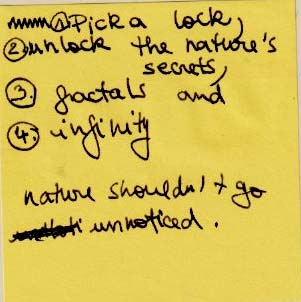 ① Pick a lock,
② unlock the nature's
secrets,
③. fractals and
④. infinity
nature shouldn't go
unnoticed.